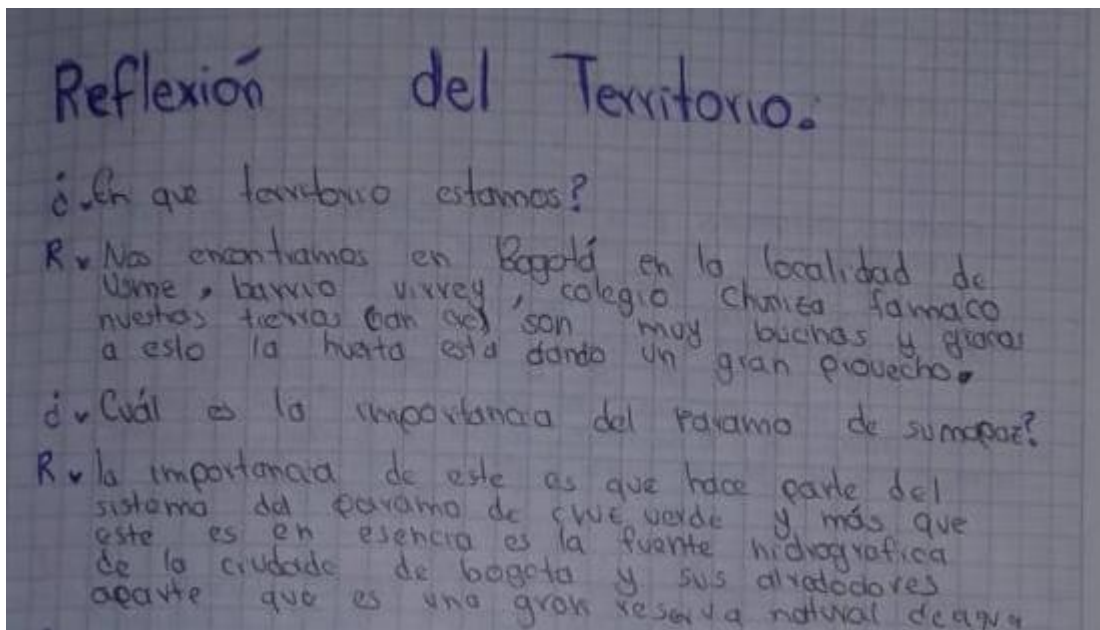 Reflexión del Territorio.
¿. En que territorio estamos?
R. Nos encontramos en Bogotá en la localidad de
Usme, barrio virrey, colegio Chuniza famaco
nuestras tierras son muy buenas y gracias
a esto la huerta está dando un gran provecho.
¿. Cuál es la importancia del Paramo de sumapaz?
R. la importancia de este es que hace parte del
sistema del paramo de verde y más que
este es en esencia es la fuente hidrografica
de la ciudade de bogota y sus alrededores
aparte que es una gran reserva natural de agua